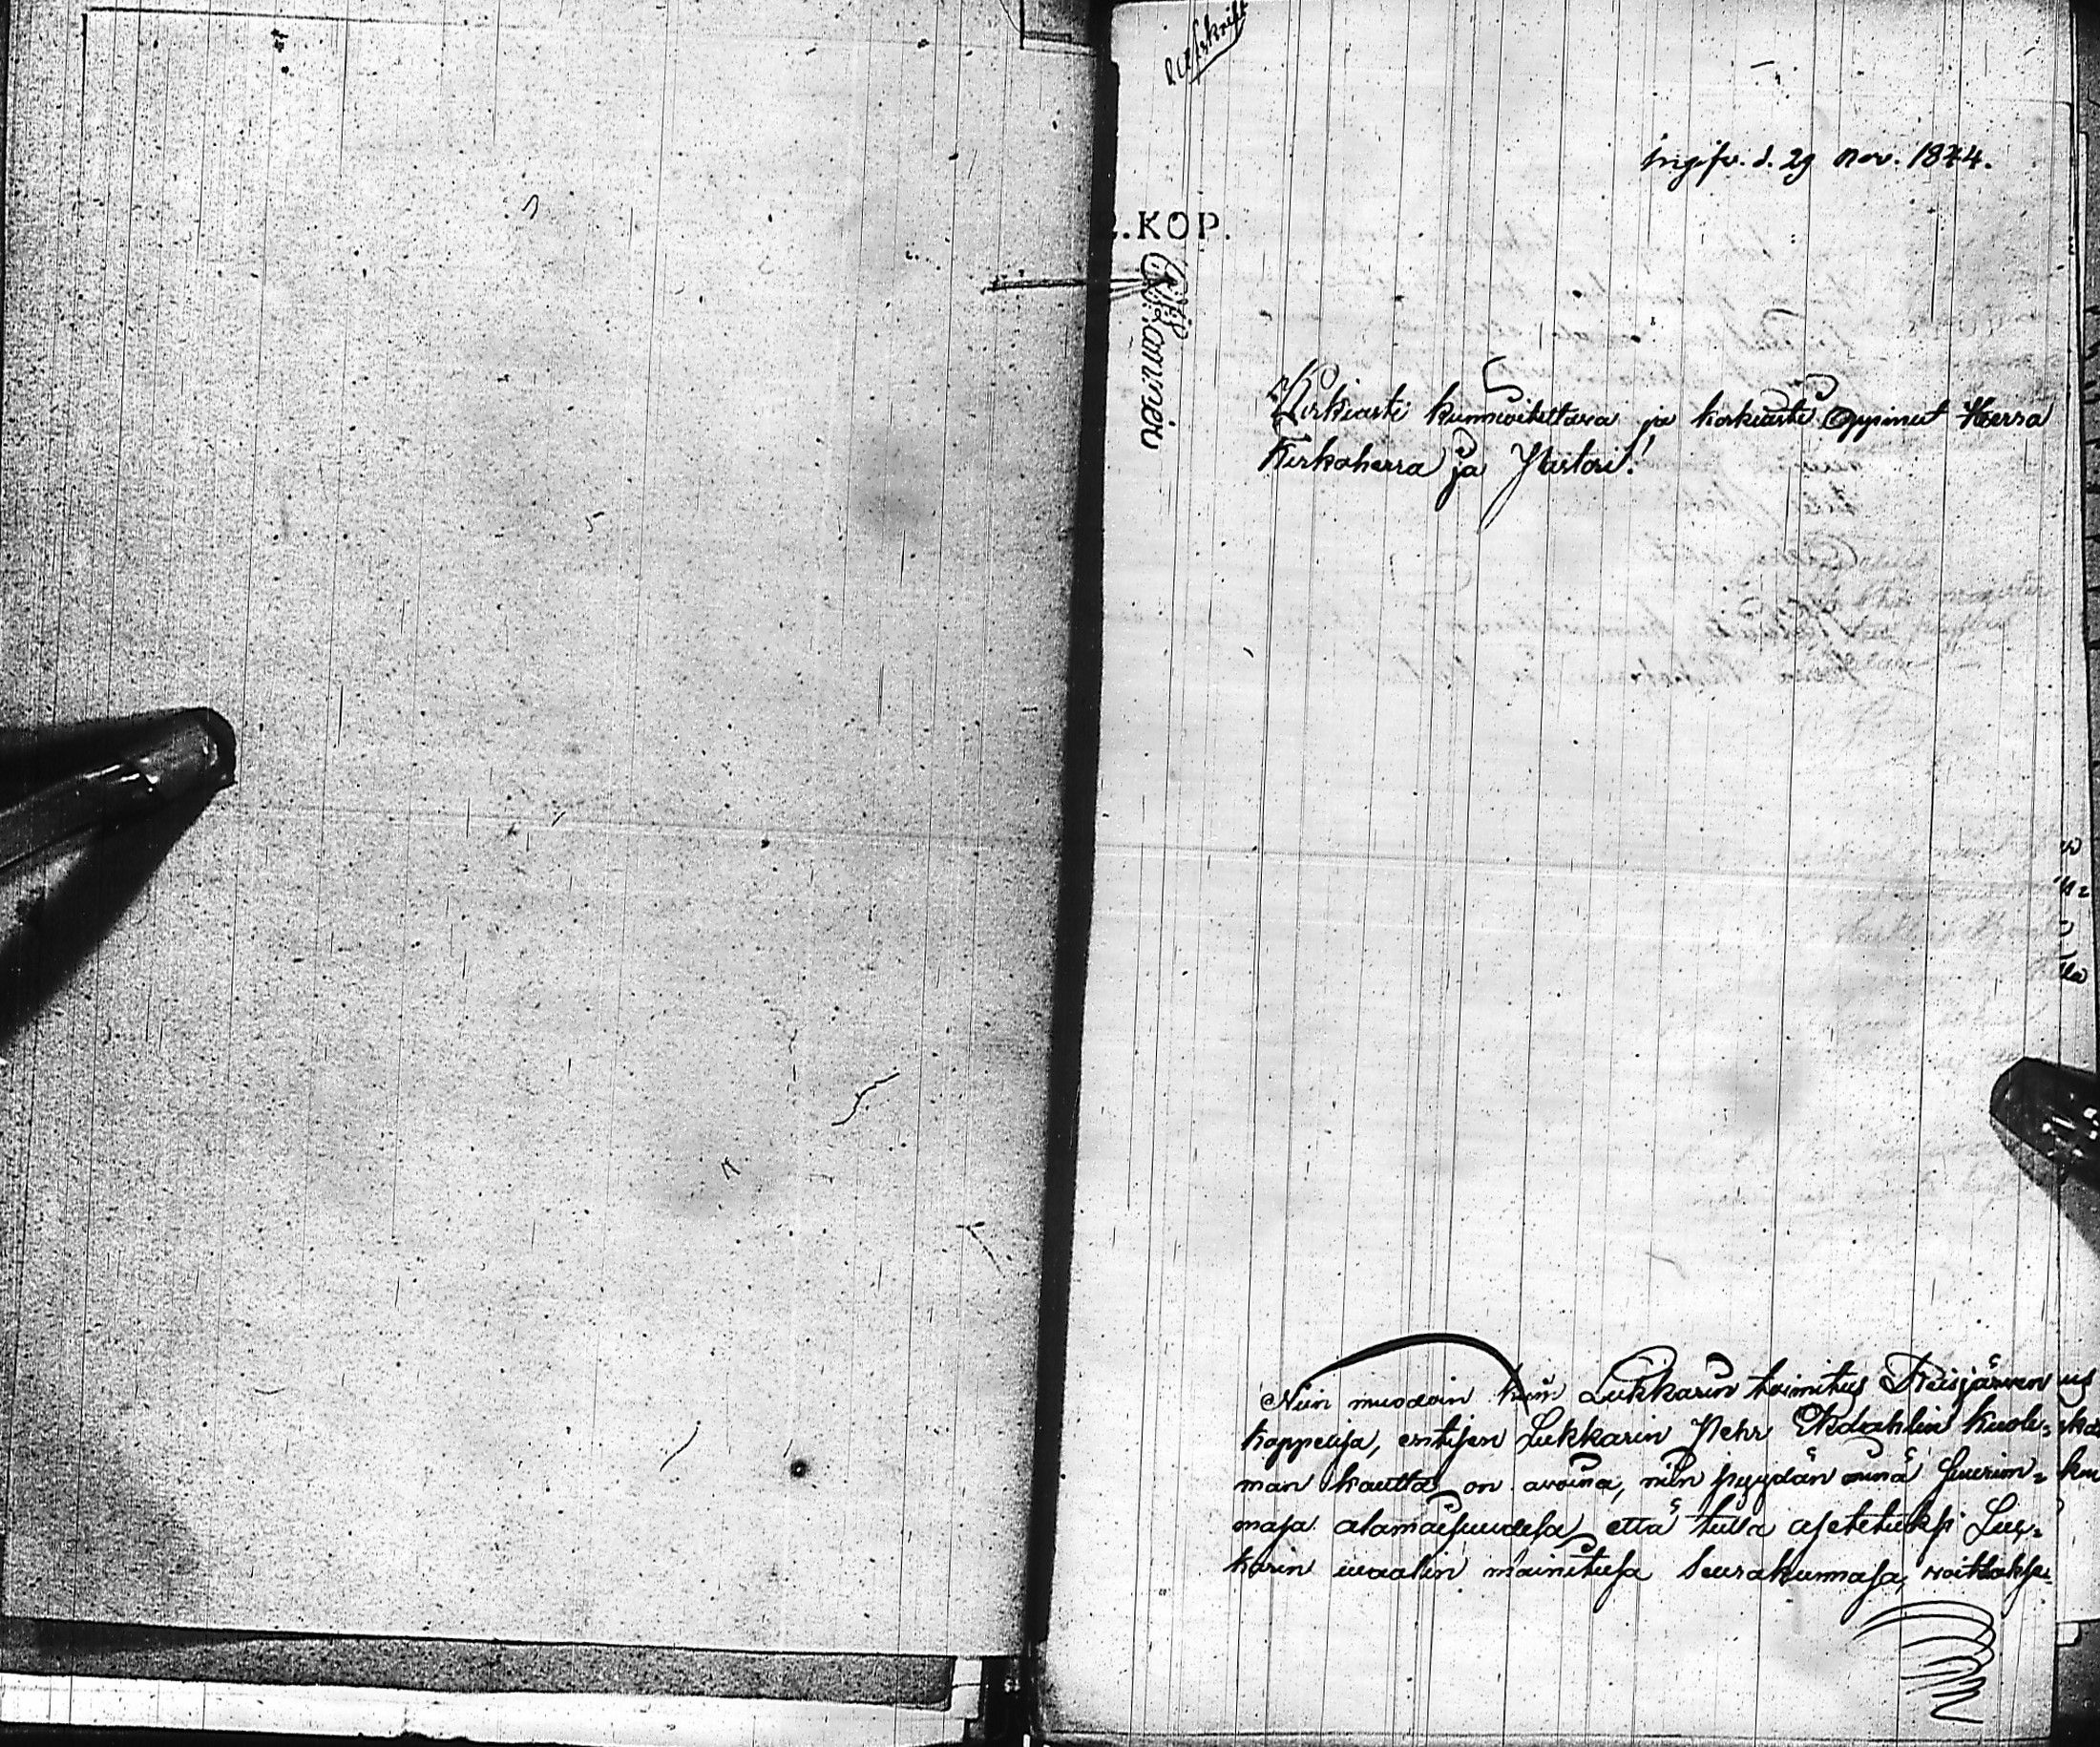 Afskrift
Ingifv. d. 29 Nov. 1844.
.KOP.
Korkiasti kunnioitettava ja korkiasti Oppinut Herra
Kirkoherra ja Pastori!
Niin muodoin kuin Lukkarin toimitus Reisjärven
kappelisa, entisen Lukkarin Pehr Ekdahlin kuole=
man kautta on avoina, niin pyydän minä suurim=
masa alamaisuudesa, että tulla asetetuksi Luk=
karin waaliin mainitusa Seurakunnasa,